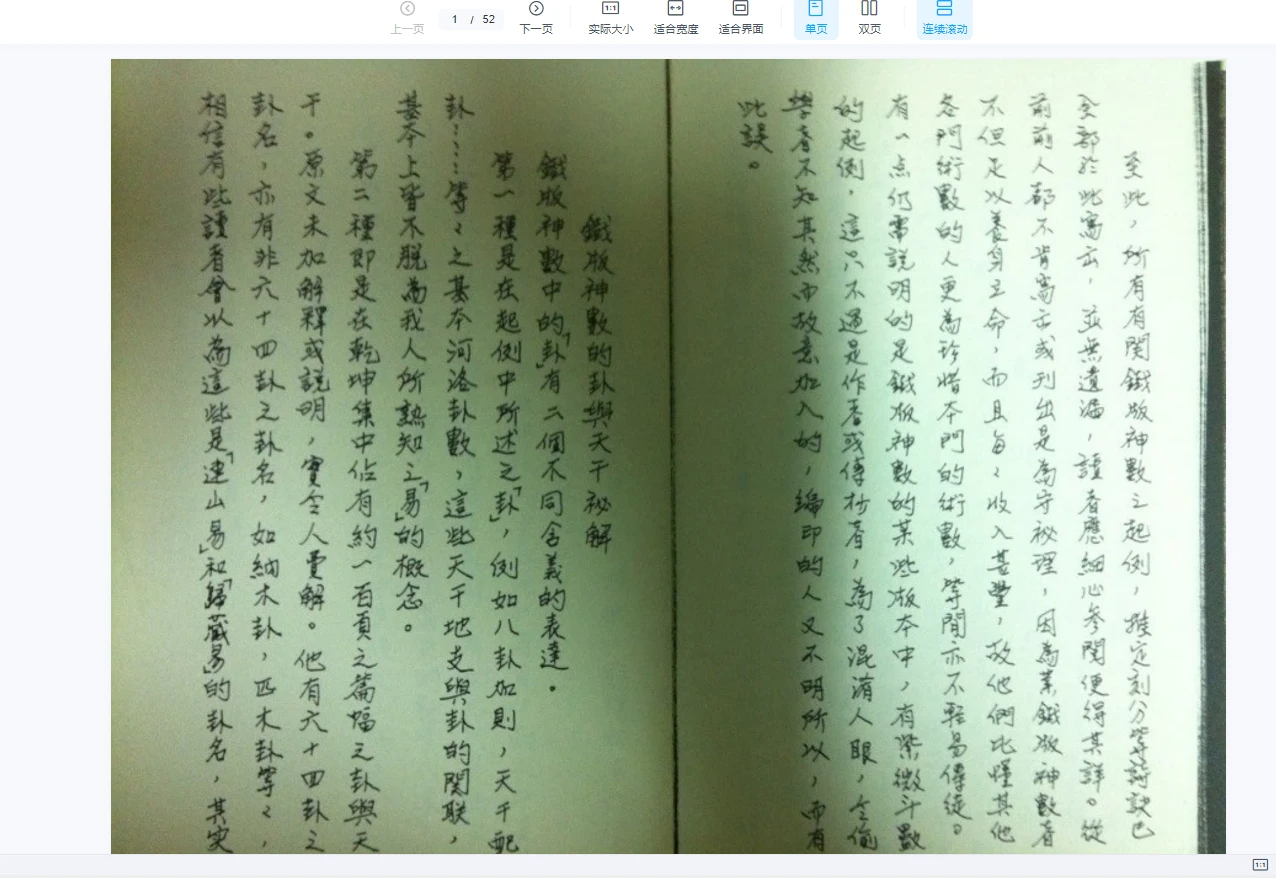 上一页
1 / 52
下一页
1:1
实际大小
适合宽度
适合界面
单页
双页
连续滚动
至此，所有有関鐵版神數之起例，推定刻分等詩訣已
全部於此寫出，並無遺漏，讀者應細心参閱便得其詳。從
前前人都不肯寫示或刋出是為守秘理，因為業鐵版神數者
不但足以養身立命，而且每々收入甚豐，故他們比懂其他
各門術數的人更為珍惜本門的術數，等閒亦不輕易傳徒。
有一点仍需説明的是鐵版神數的某些版本中，有紫微斗數
的起例，這只不過是作者或傳抄者，為了混淆人眼，令偷
學者不知其然而故意加入的，編印的人又不明所以，而有
此誤。
鐵版神數的卦與天干祕解
鐵版神數中的「卦」有二個不同含義的表達。
第一種是在起例中所述之「卦」，例如八卦加則，天干配
卦……等々之基本河洛卦數，這些天干地支與卦的関联，
基本上皆不脱為我人所熟知之「易」的概念。
第二種即是在乾坤集中佔有約一百頁之篇幅之卦與天
干。原文未加解釋或説明，實令人費解。他有六十四卦之
卦名，亦有非六十四卦之卦名，如納木卦，匹木卦等々，
相信有些讀者會以為這些是「連山易」和「歸藏易」的卦名，其实
1:1